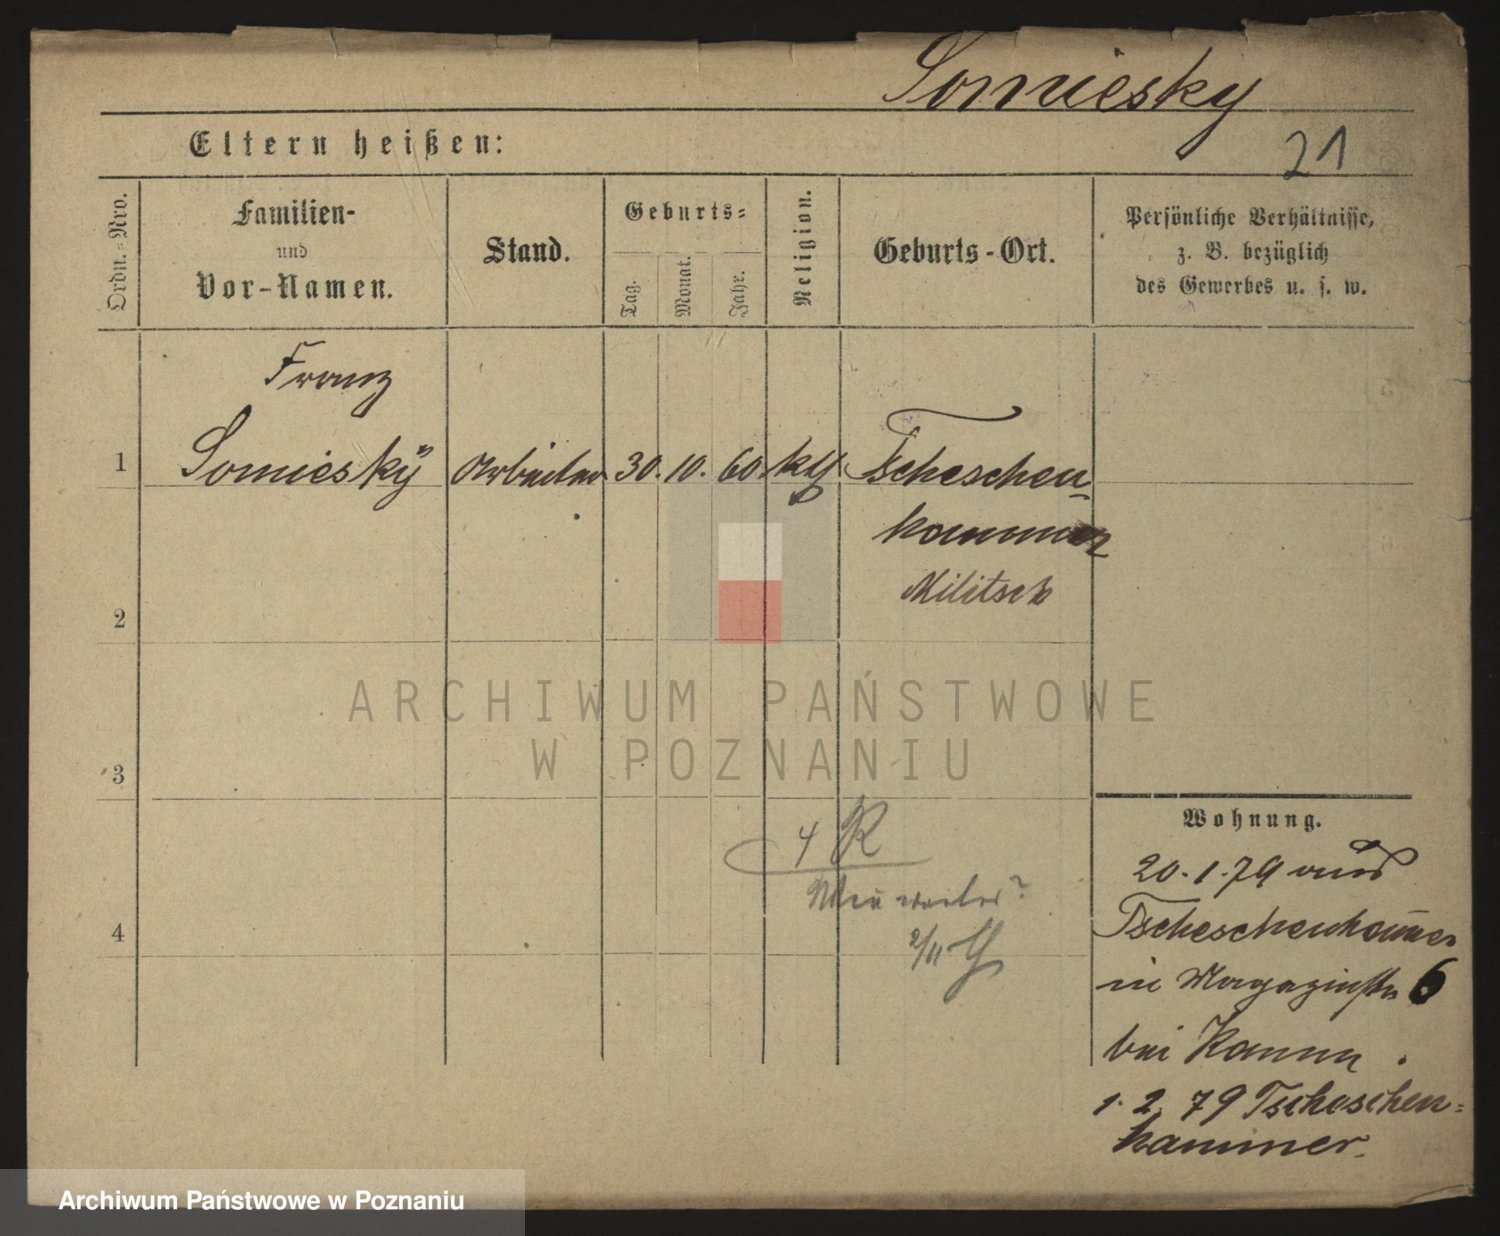 Somiesky
21
Eltern heißen:
Ordn.-Nro.
Familien-
und
Vor-Namen.
Stand.
Geburts-
Tag.
Monat.
Jahr.
Religion.
Geburts-Ort.
Persönliche Verhältnisse,
z. B. bezüglich
des Gewerbes u. s. w.
Franz
1 Somiesky Arbeiter 30. 10. 60. kth Tscheschen-
kammer
Militsch
2
ARCHIWUM PAŃSTWOWE
W POZNANIU
3
Wohnung.
4 R
20. 1. 79 aus
Tscheschenkammer
in Magazinstr 6
bei
1. 2. 79 Tscheschen-
hammer.
2/11
4
Archiwum Państwowe w Poznaniu